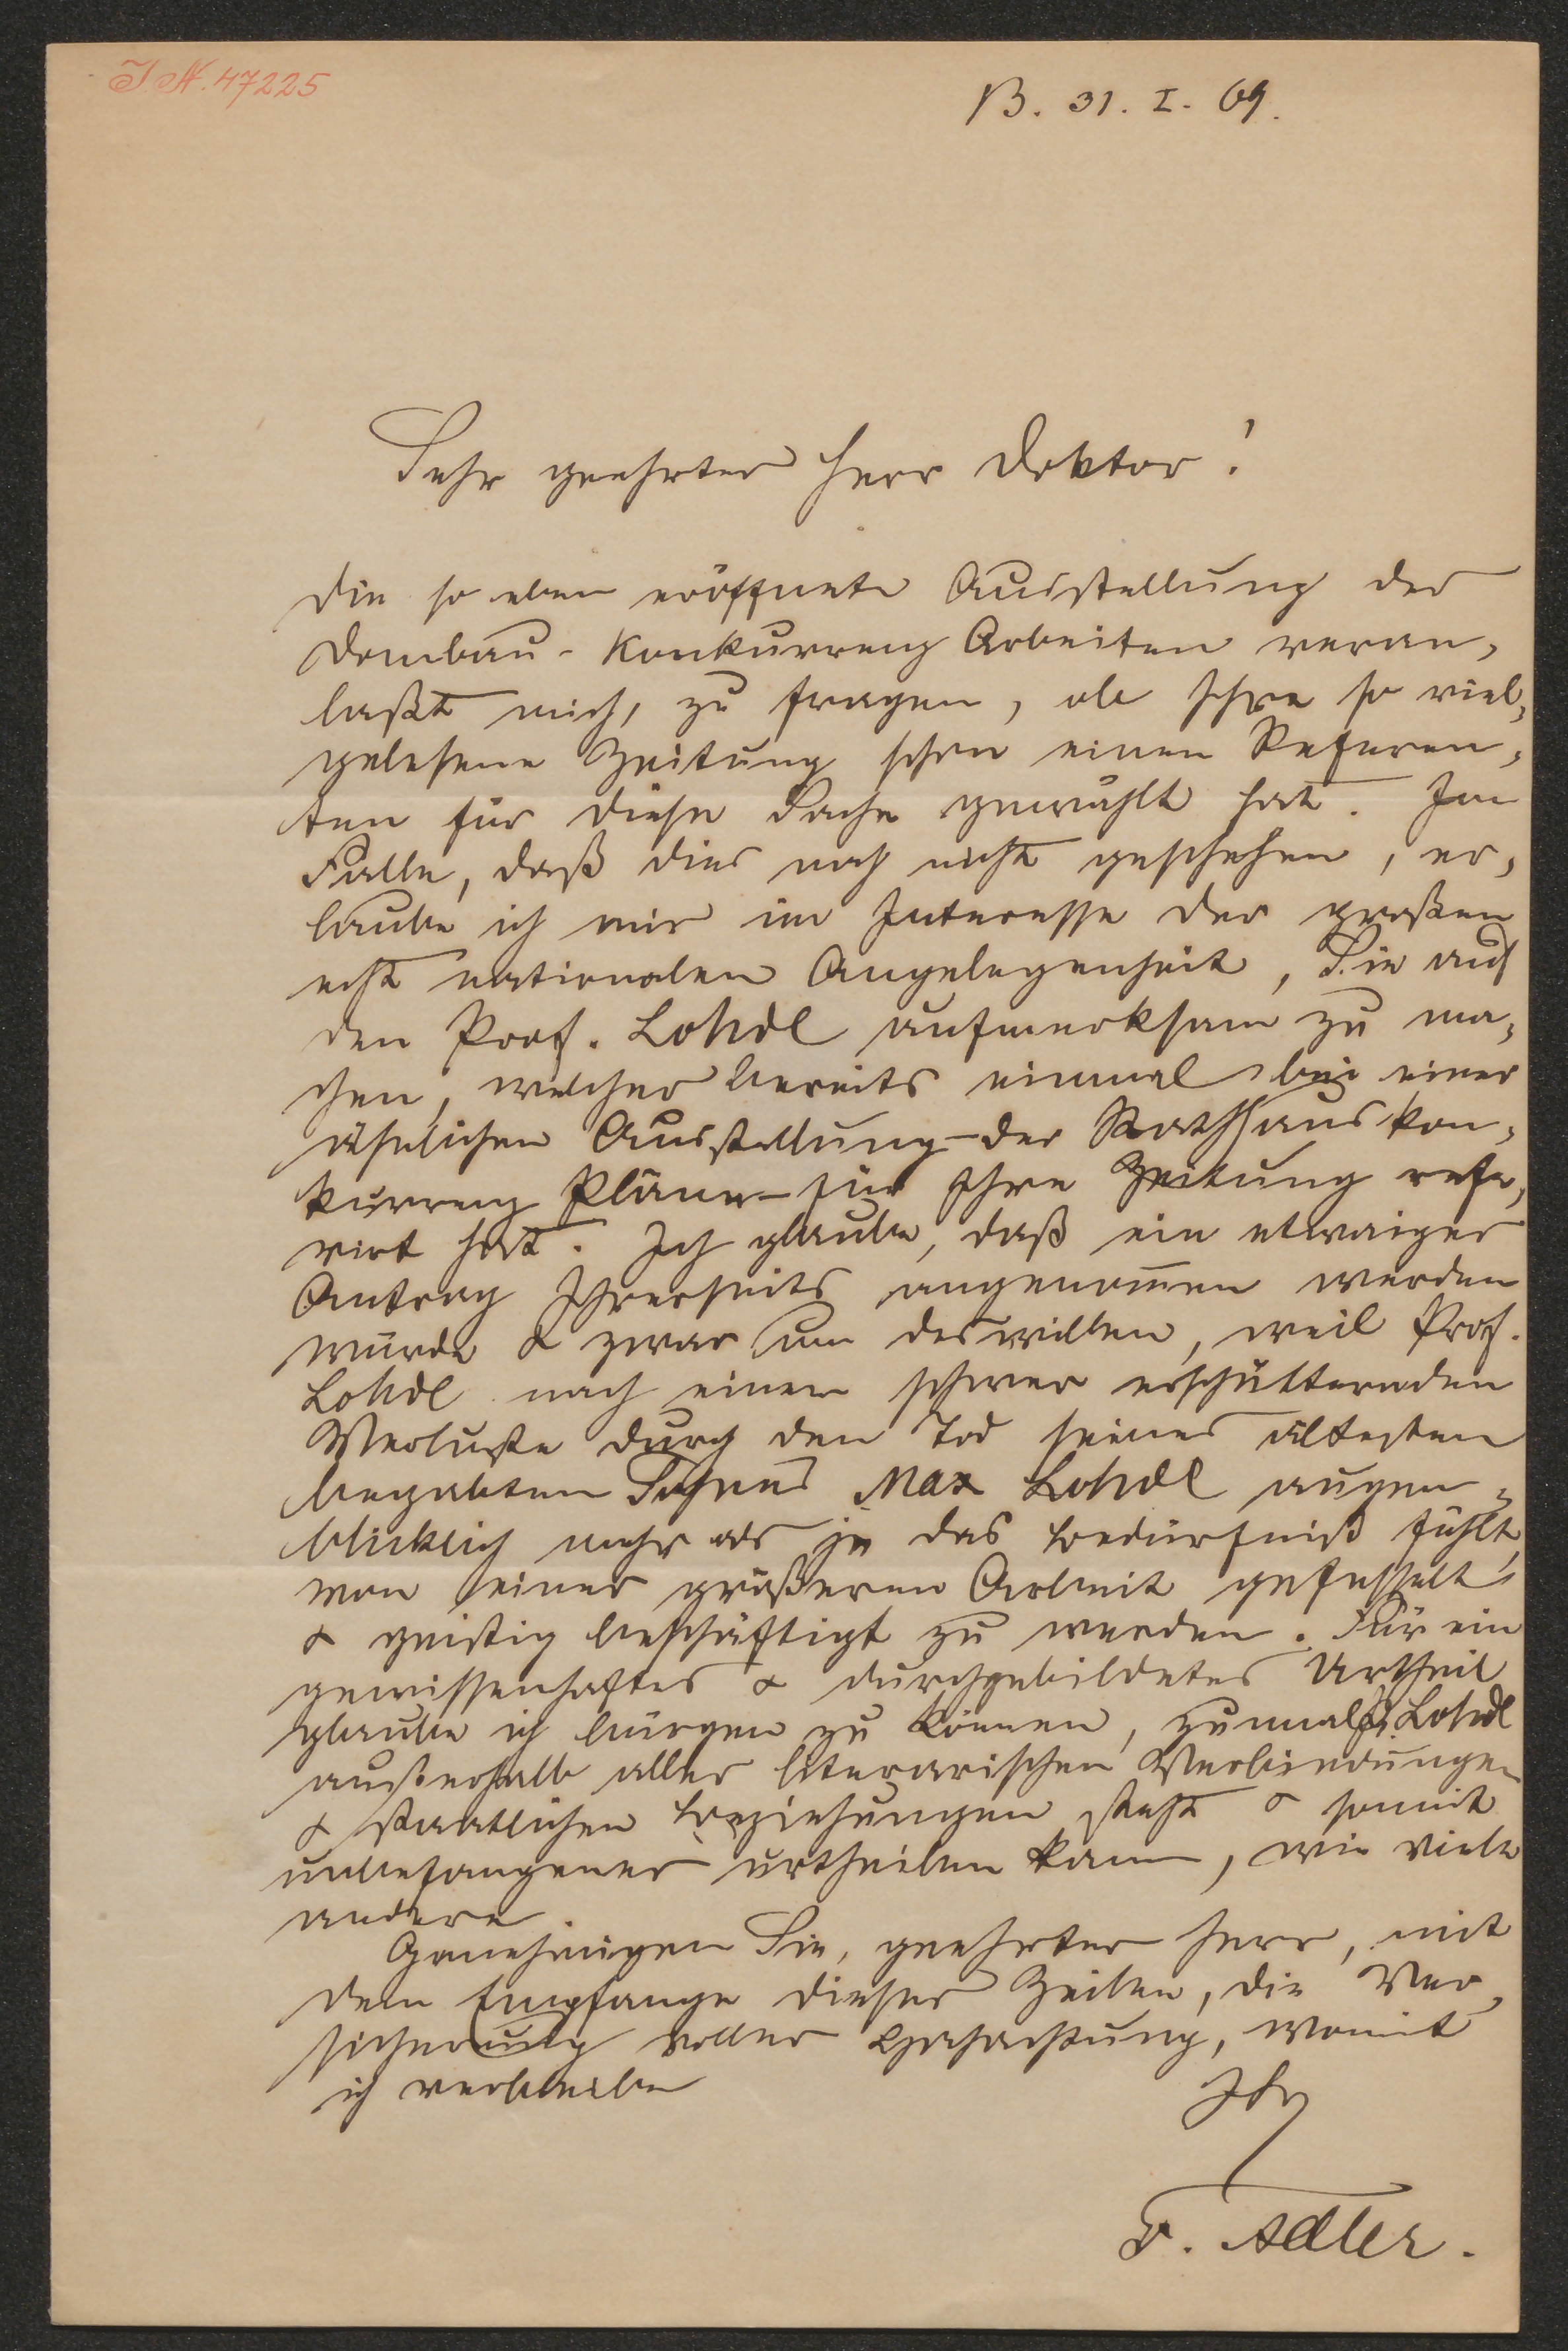 I. N. 47225
B. 31. I. 69.
Sehr geehrter Herr Doktor!
Die so eben eröffnete Ausstellung der
Dombau-Konkurrenz Arbeiten veran-
laßt mich, zu fragen, ob Ihre so viel-
gelesene Zeitung schon einen Referen-
ten für diese Sache gewählt hat. Im
Falle, daß dies noch nicht geschehen, er-
laube ich mir im Interesse der großen
echt nationalen Angelegenheit, Sie auf
den Prof. Lohde aufmerksam zu ma-
chen, welcher bereits einmal bei einer
ähnlichen Ausstellung - der Rathhauskon-
kurrenz Pläne - für Ihre Zeitung refe-
rirt hat. Ich glaube, daß ein etwaiger
Antrag Ihrerseits angenom̄en werden
würde & zwar um deswillen, weil Prof.
Lohde nach einem schwer erschütternden
Verluste durch den Tod seines ältesten
begabten Sohnes Max Lohde augen-
blicklich mehr als je das Bedürfniß fühlt,
von einer größeren Arbeit gefesselt
& geistig beschäftigt zu werden. Für ein
gewissenhaftes & durchgebildetes Urtheil
glaube ich bürgen zu können, zumal Lohde
außerhalb aller literarischen Verbindungen
& staatlichen Beziehungen steht & somit
unbefangener urtheilen kann, wie viele
andere.
Genehmigen Sie, geehrter Herr, mit
dem Empfange dieser Zeilen, die Ver-
sicherung voller Hochachtung, womit
ich verbleibe
Ihr
F. Adler.